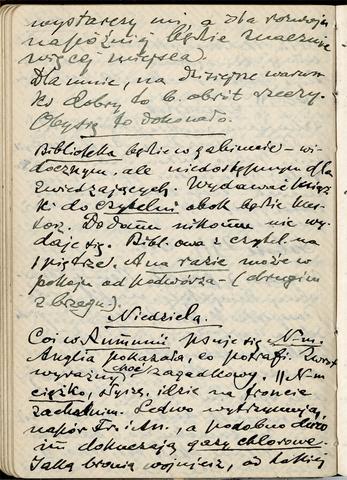 wystarczy mi, a dla rozwoju
najpóźniej będzie znacznie
więcej miejsca.
Dla mnie, na dzisiejsze warun-
ki dobry to b. obrót rzeczy.
Oby się to dokonało.
Biblioteka będzie w gabinecie – wi-
docznym, ale niedostępnym dla
zwiedzających. Wydawać książ-
ki do czytelni obok będzie kus-
tosz. Do domu nikomu nie wy-
daje się. Bibl. owa z czytel. na
I piętrze. A na razie może w
pokoju od podwórza – (drugim
z brzegu).
Niedziela.
Coś w psuje się N-m.
Anglia pokazała, co potrafi. Zwrot
wyraźny, choć zagadkowy. N-m
ciężko, słysz. idzie na froncie
zachodnim. Ledwo wytrzymują
napór Fr. i An., a podobno dużo
im dokuczają gazy chlorowe.
Jaką bronią wojujesz, od takiej